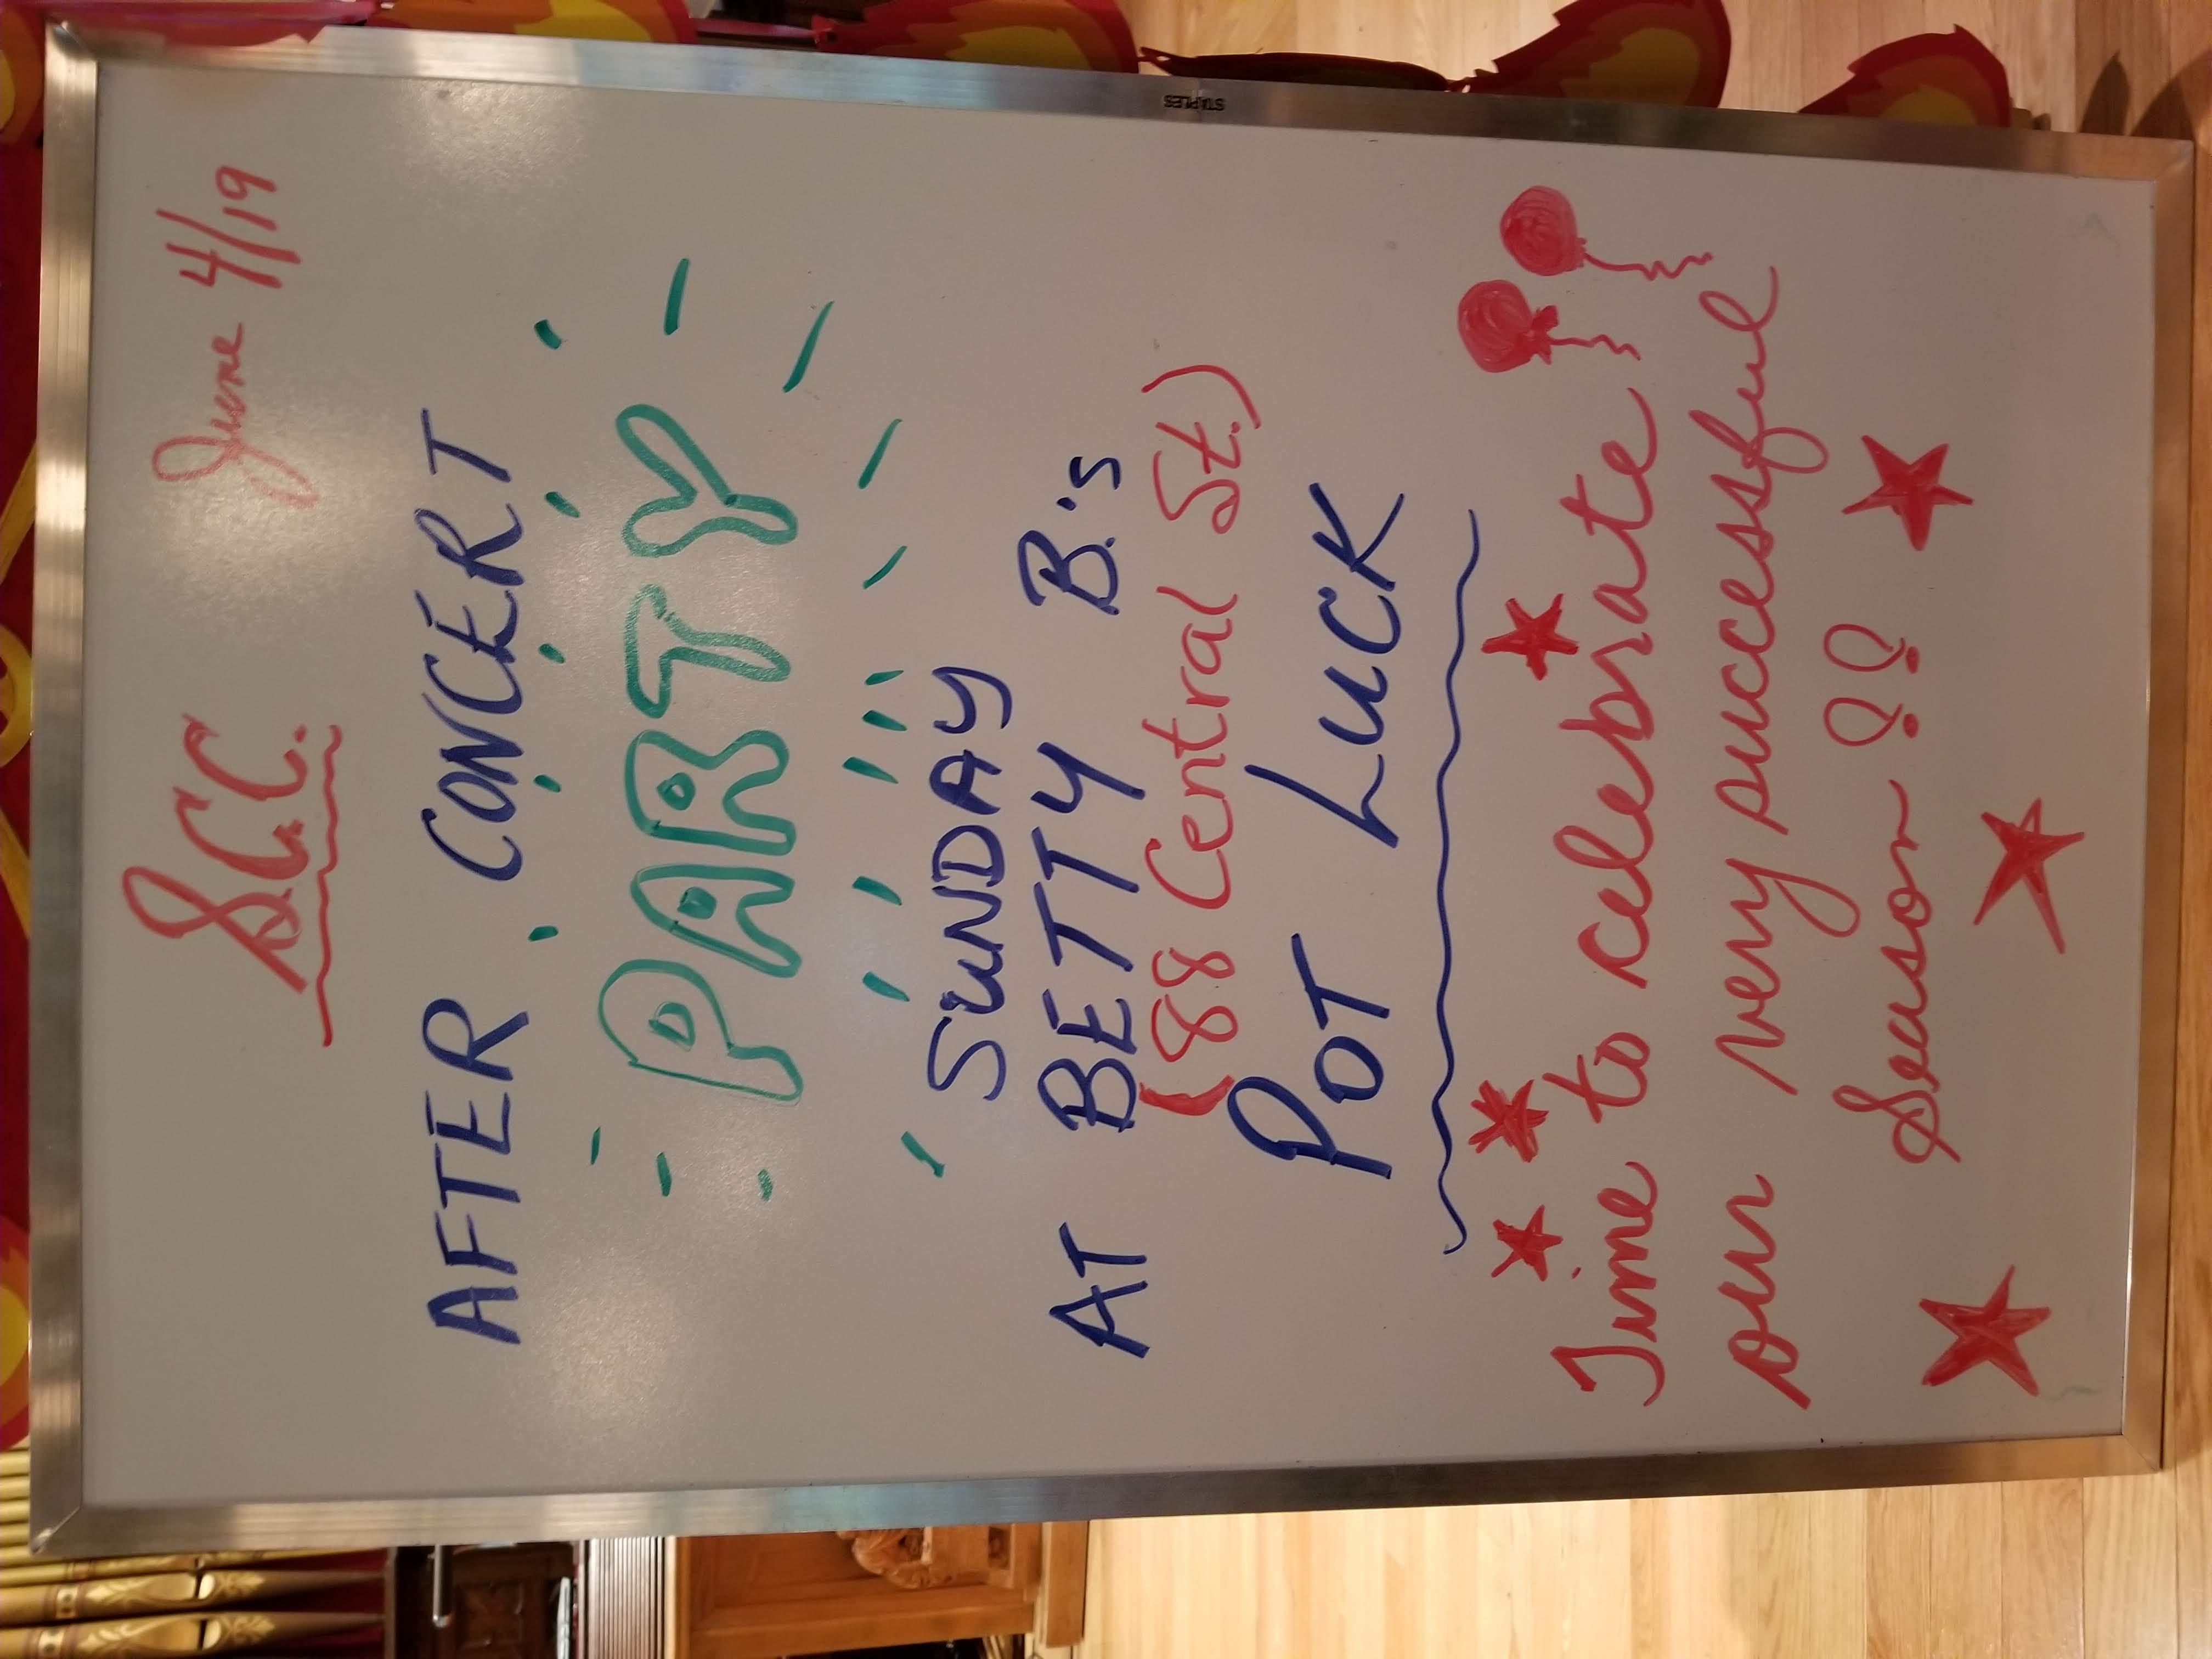 S.C.C.
June 4/19
AFTER CONCERT
PARTY
SUNDAY
AT BETTY B.'s
(88 Central St.)
POT LUCK
Time to celebrate
our very successful
Season !!
STAPLES